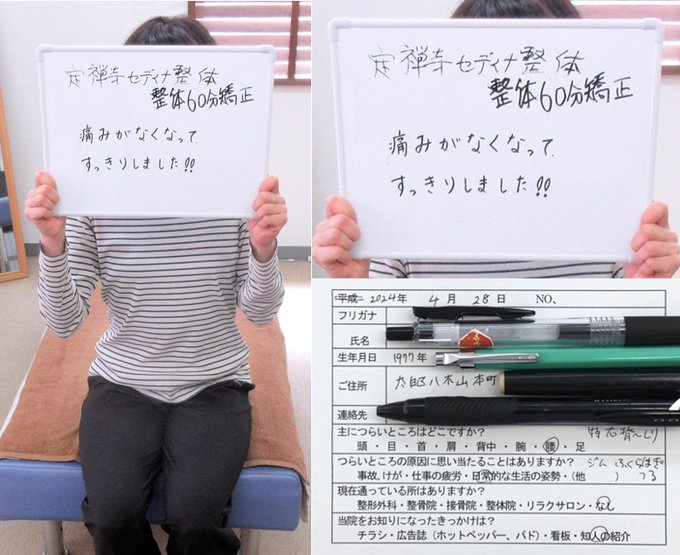 定禅寺セディナ整体
整体60分矯正
痛みがなくなって、
すっきりしました!!
定禅寺セディナ整体
整体60分矯正
痛みがなくなって、
すっきりしました!!
平成 2024年 4月 28日 NO、
フリガナ
氏名
生年月日 1977年
ご住所 太白区八木山本町
連絡先
主につらいところはどこですか? 特右背
頭・目・首・肩・背中・腕・腰・足
つらいところの原因に思い当たることはありますか? ジム ふくらはぎ
事故、けが・仕事の疲労・日常的な生活の姿勢・(他 ) つる
現在通っている所はありますか?
整形外科・整骨院・接骨院・整体院・リラクサロン・なし
当院をお知りになったきっかけは?
チラシ・広告誌(ホットペッパー、パド)・看板・知人の紹介